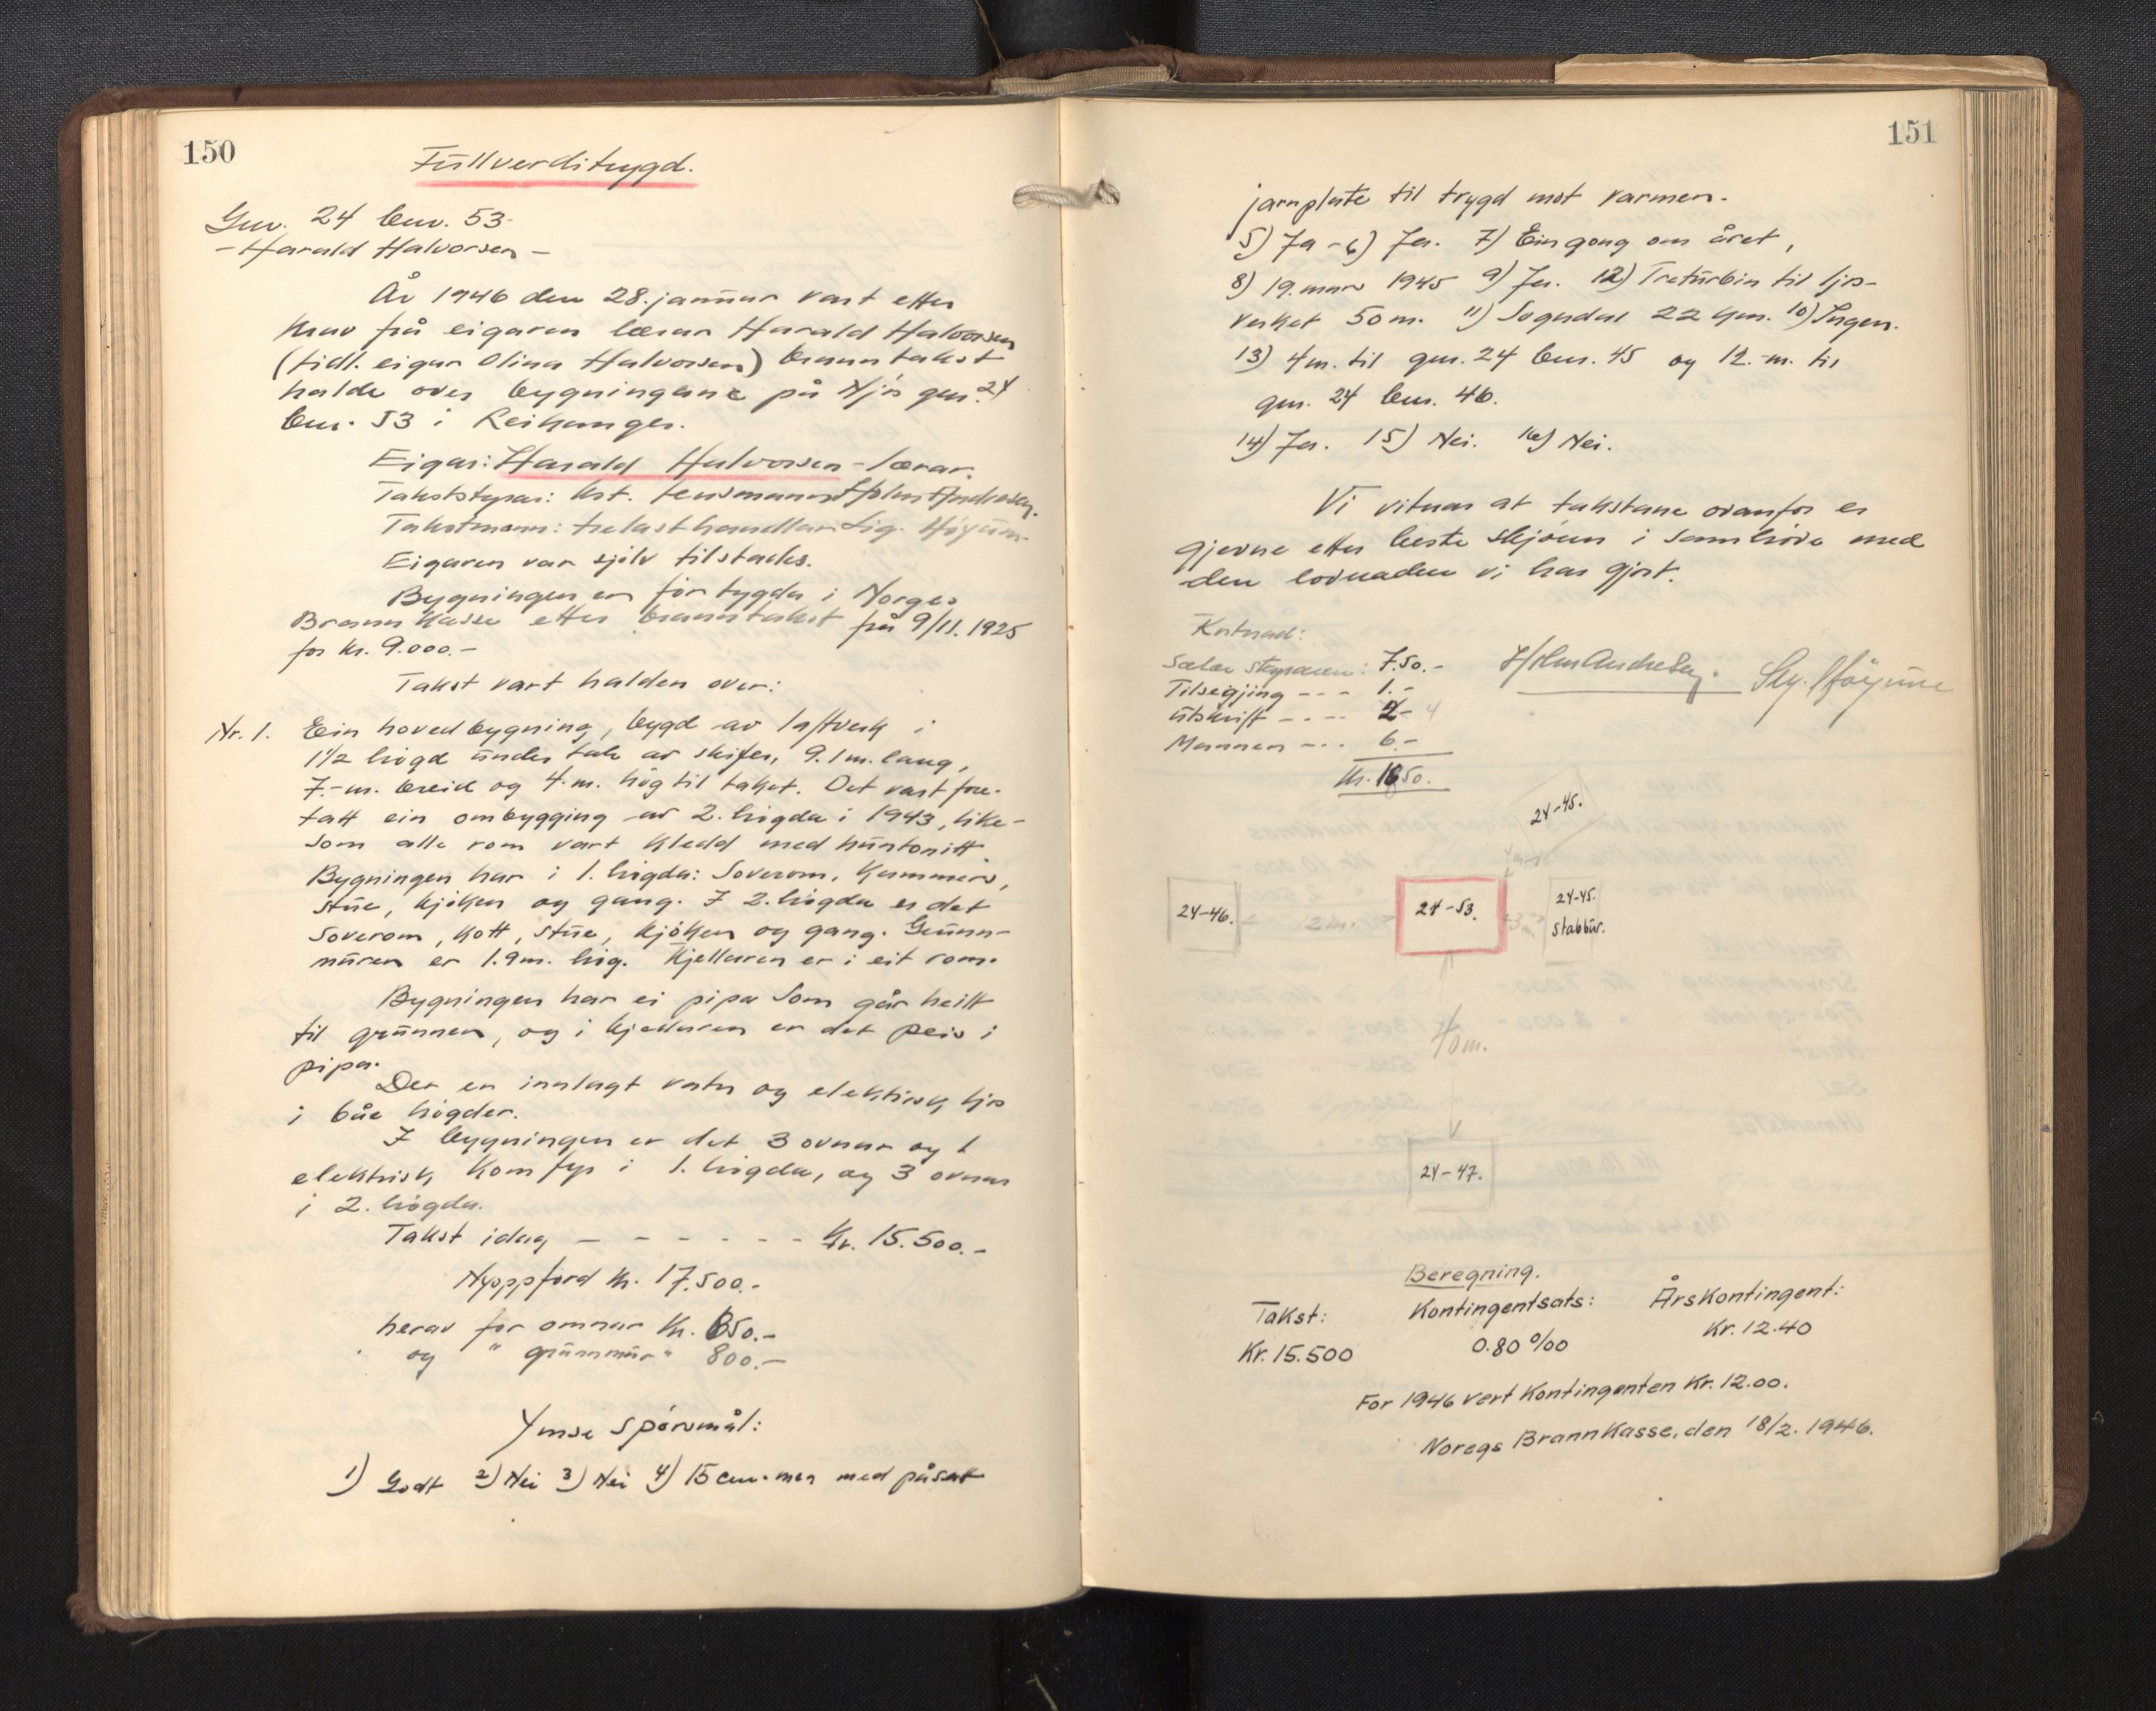 150
Fullverditrygd.
Gnr. 24 bnr. 53.
- Harald Halvorsen -
År 1946 den 28. januar vart etter
krav frå eigaren lærar Harald Halvorsen
(tidl. eigar Olina Halvorsen) branntakst
halde over bygningane på Njøs gnr. 24
bnr. 53 i Leikanger.
Eigar: Harald Halvorsen - lærar.
Takststyrar: kst. lensmann Holm Andresen.
Takstmann: trelasthandlar Sig. Høyum.
Eigaren var sjølv tilstades.
Bygningen er fortrygda i Norges
Brannkasse etter branntakst frå 9/11. 1925
for kr. 9.000.-
Takst vart halden over:
Nr. 1. Ein hovedbygning, bygd av laftverk i
1 1/2 høgd under tak av skifer, 9.1 m. lang,
7.- m. breid og 4. m. høg til taket. Det vart fore-
tatt ein ombygging av 2. høgda i 1943, like-
som alle rom vart kledd med huntonitt.
Bygningen har i 1. høgda: Soverom, Kammers,
stue, kjøken og gang. I 2. høgda er det
soverom, kott, stue, kjøken og gang. Grunn-
muren er 1.9 m. høg. Kjellaren er i eit rom.
Bygningen har ei pipa som går heilt
til grunnen, og i kjellaren er det peis i
pipa.
Der er innlagt vatn og elektrisk ljos
i båe høgder.
I bygningen er det 3 ovnar og 1
elektrisk komfyr i 1. høgda, og 3 ovnar
i 2. høgda.
Takst idag - - - - - - Kr. 15.500.-
Nyoppførd kr. 17.500.-
herav for omnar kr. 650.-
og " grunnmur " 800.-
Ymse spørsmål:
1) Godt 2) Nei 3) Nei 4) 15 cm. men med påsat
151
jarnplate til trygd mot varmen.
5) Ja - 6) Ja. 7) Ein gong om året,
8) 19. mars 1945 9) Ja. 12) Treturbin til ljos-
verket 50 m. 11) Sogndal 22 km. 10) Ingen.
13) 4 m. til gnr. 24 bnr. 45 og 12.- m. til
gnr. 24 bnr. 46.
14) Ja. 15) Nei. 16) Nei.
Vi vitnar at takstane ovanfor er
gjevne etter beste skjønn i samhøve med
den lovnaden vi har gjort.
Kostnad:
Salær styraren: 7.50.-
Tilseging - - - 1.-
Utskrift - . - - 2.- 4
Mannen - - . . 6.-
Kr. 16.50.
Holm Andresen. Sig. Høyum
24-45.
4 m.
24-46.
12 m.
24-53.
3 m.
24-45.
stabbur.
40 m.
24-47.
Beregning.
Takst: Kontingentsats: Årskontingent:
Kr. 15.500 0.80 ‰ Kr. 12.40
For 1946 vert kontingenten Kr. 12.00.
Noregs Brannkasse, den 18/2. 1946.